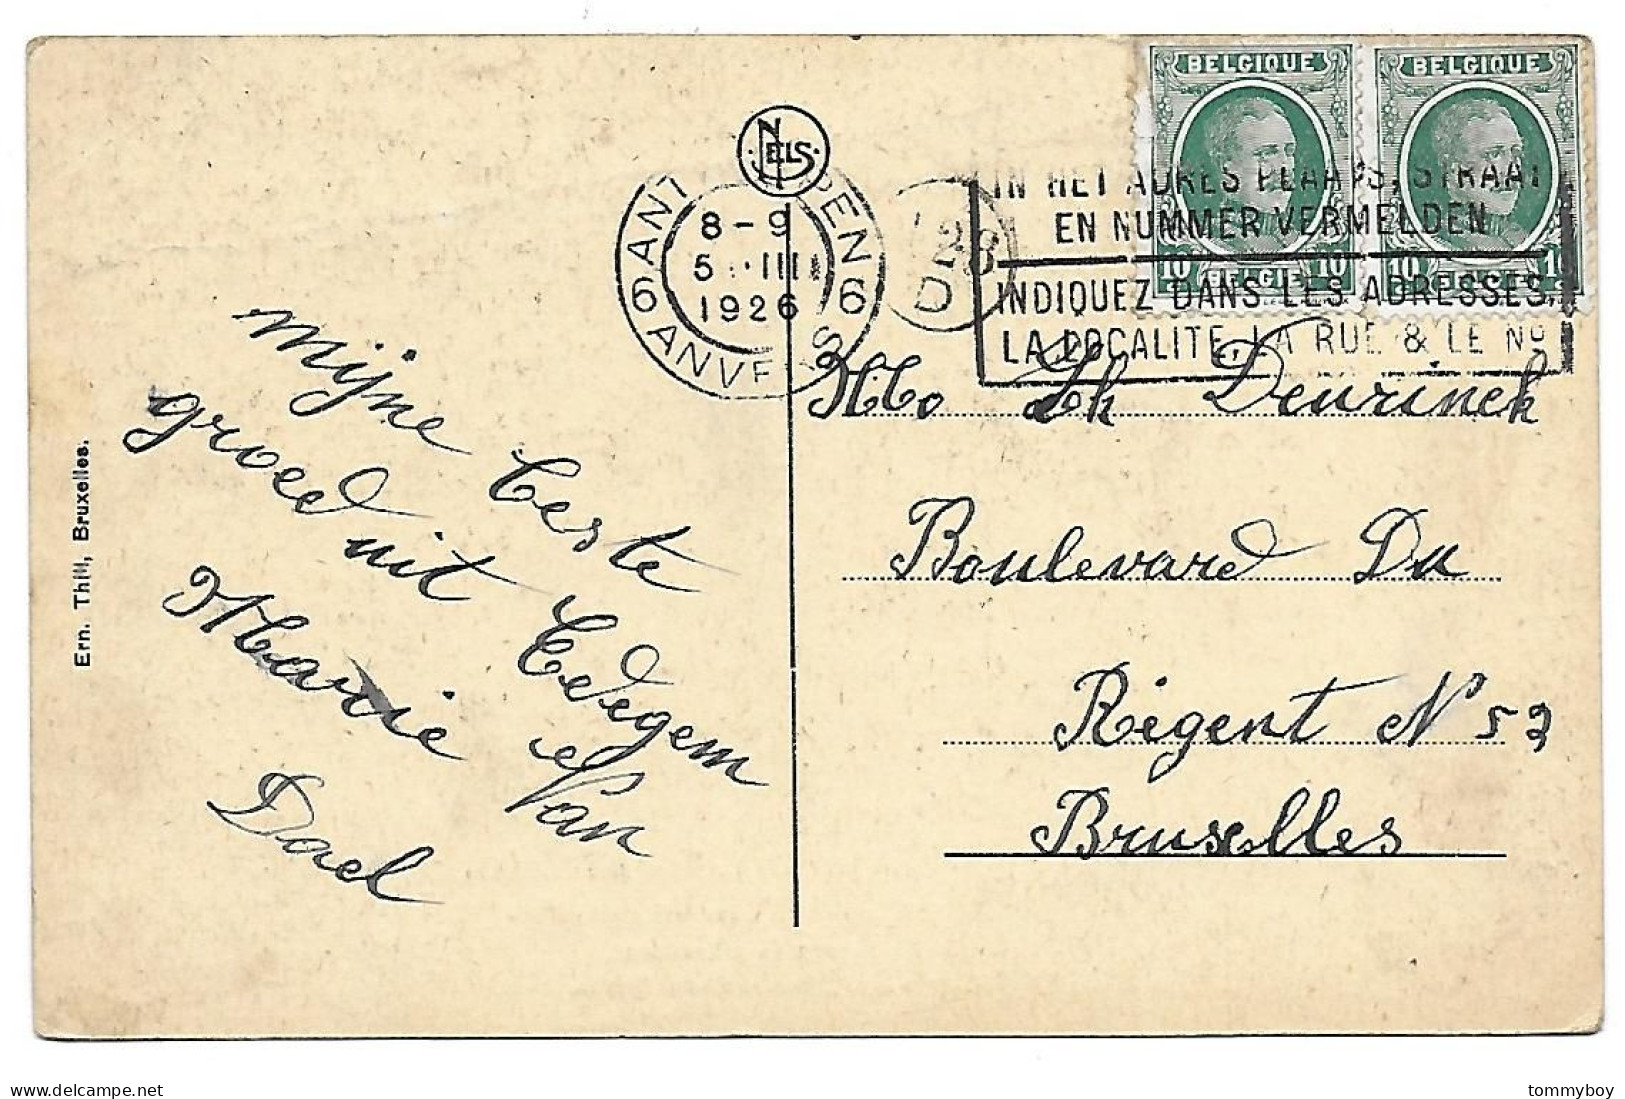 BELGIQUE BELGIQUE
10 BELGIE 10 10 BELGIE 10
NELS
6 ANTWERPEN 6
8-9
5 III
1926
ANVERS
23
D
IN HET ADRES PLAATS, STRAAT
EN NUMMER VERMELDEN
INDIQUEZ DANS LES ADRESSES,
LA LOCALITE, LA RUE & LE No
Mijne beste
groed uit Edegem
Marie Van
Dael
Deurinck
Boulevard Du
Régent N 52
Bruxelles
Ern. Thill, Bruxelles.
tommyboy